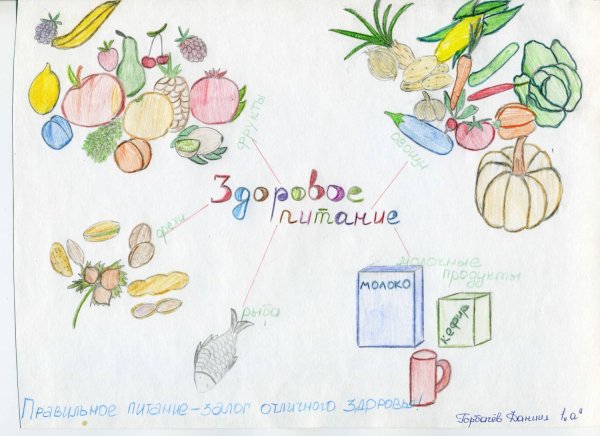 фрукты
овощи
Здоровое
питание
орехи
молочные
продукты
молоко
кефир
рыба
Правильное питание - залог отличного здоровья!
Горбачёв Даниил 1 "а"